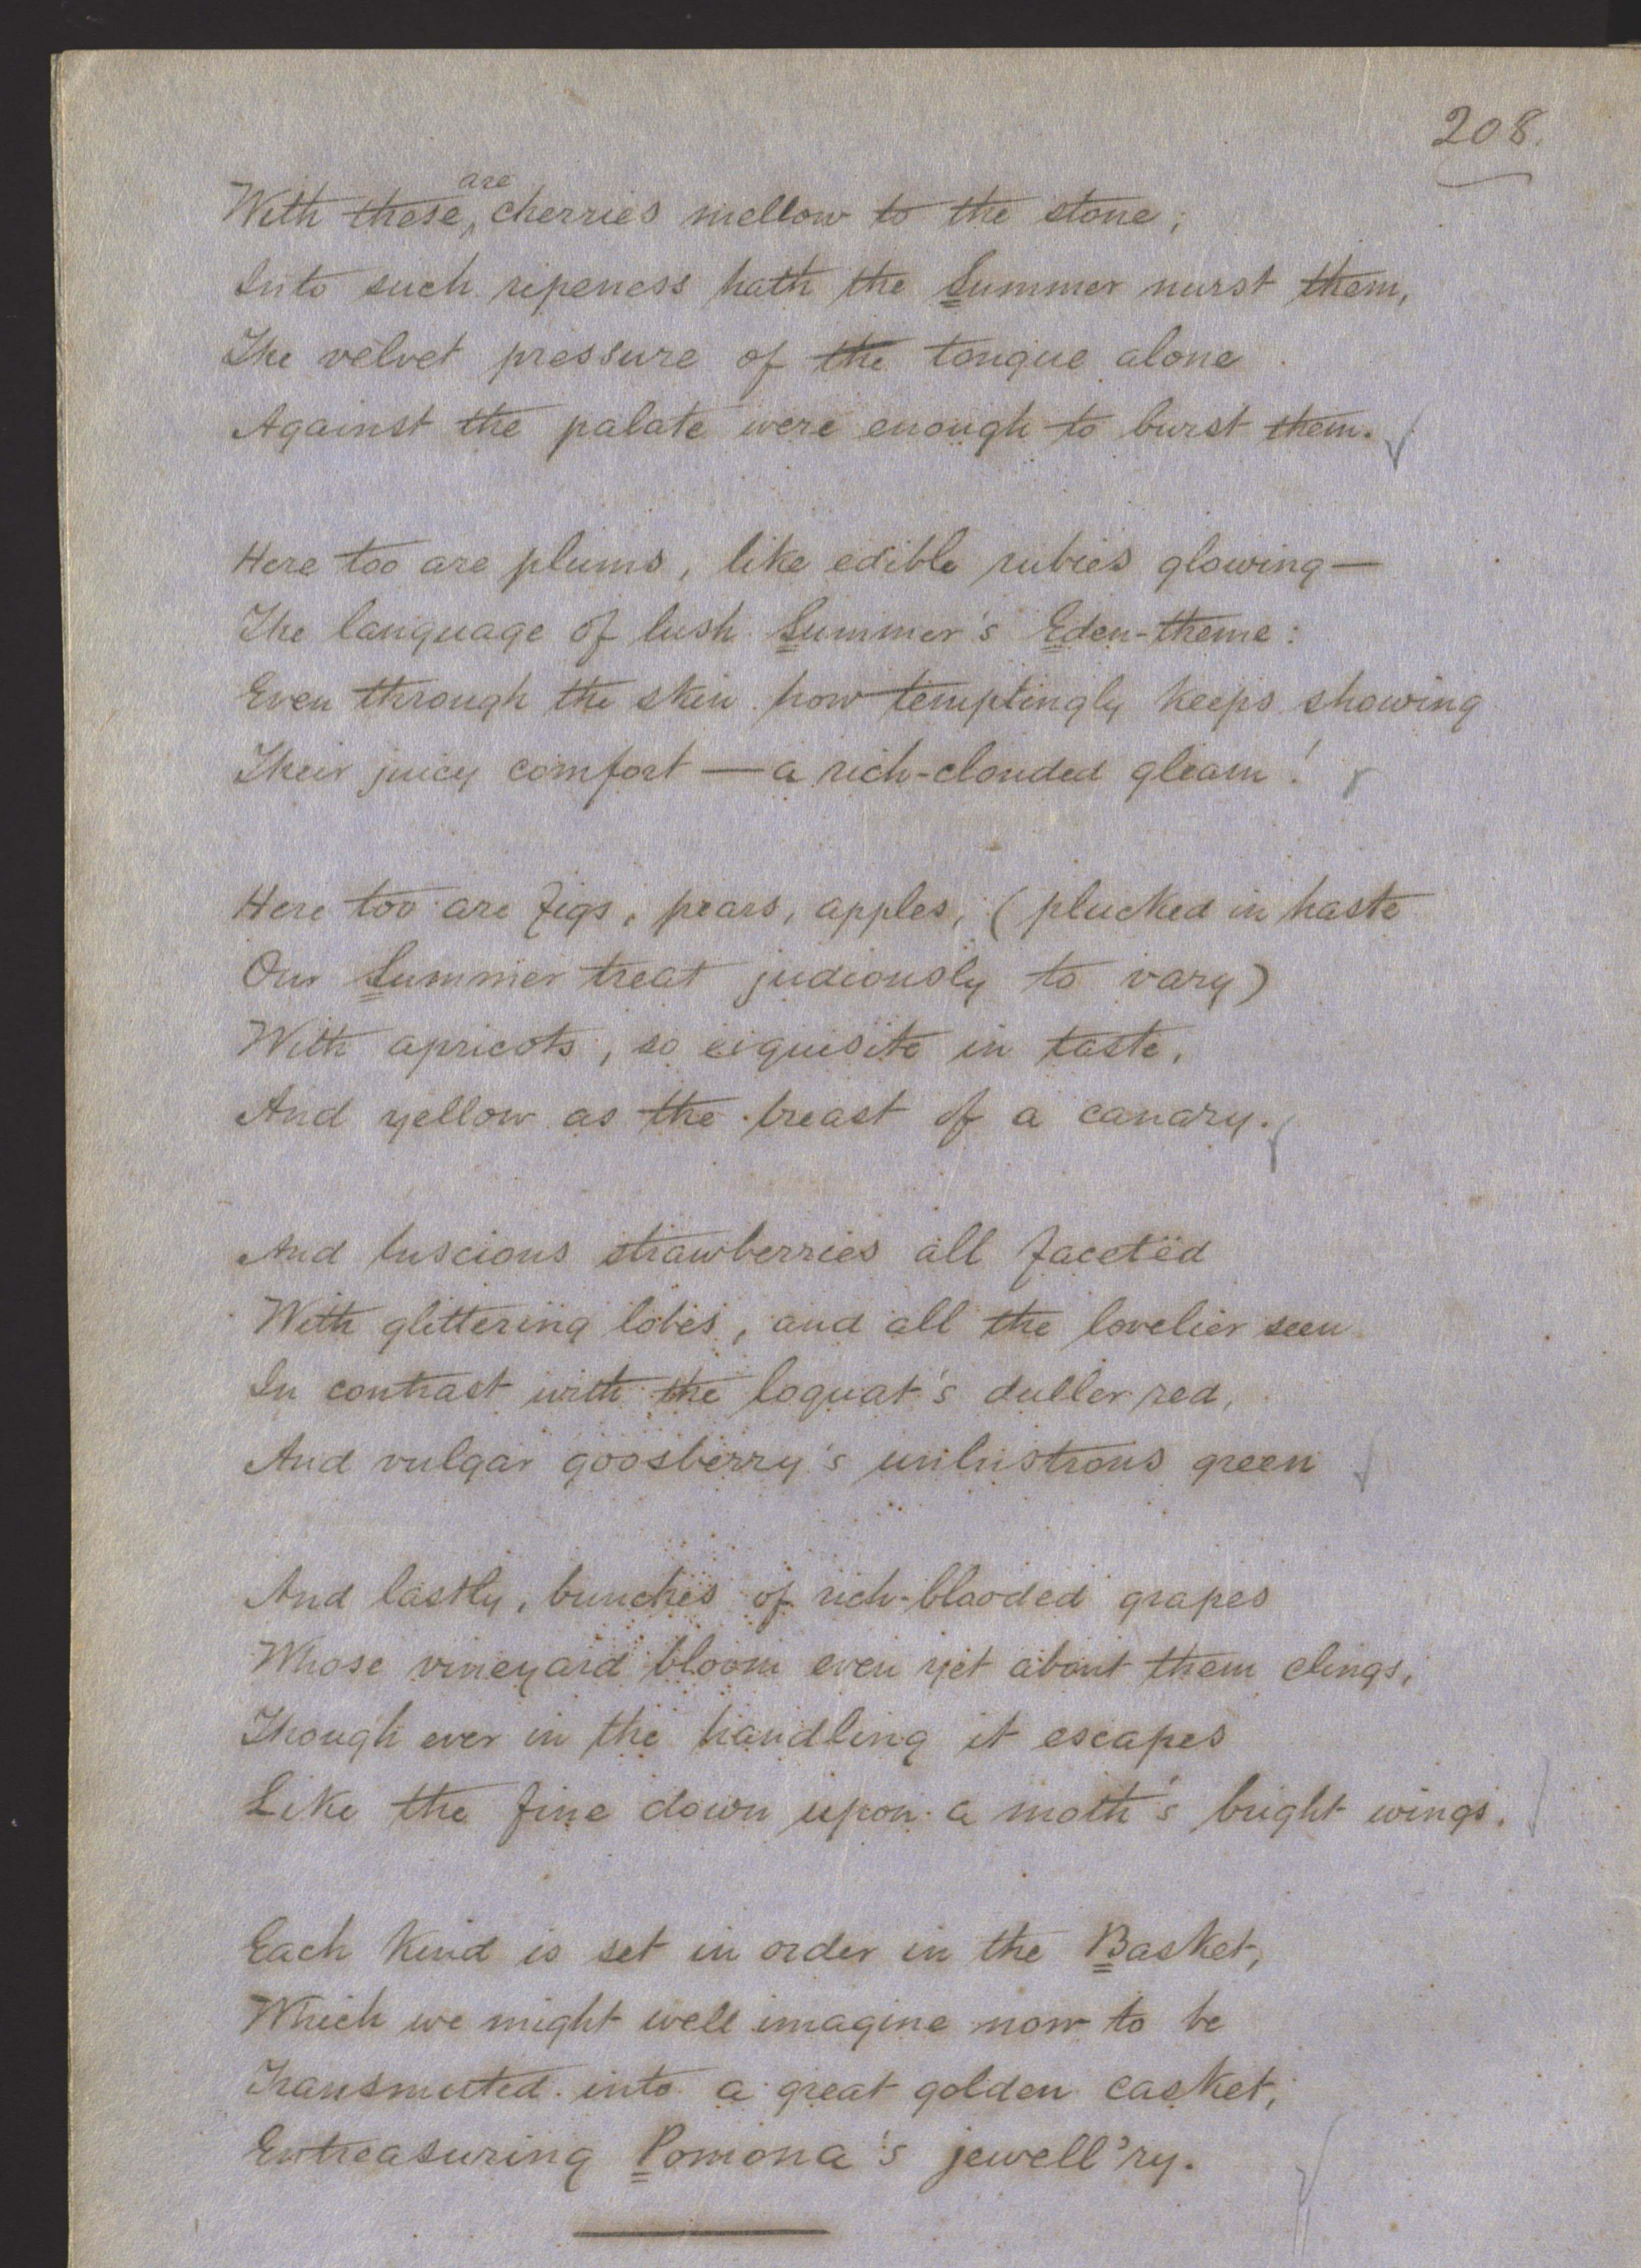 208.
With these, are cherries mellow to the stone;
Into such ripeness hath the Summer nurst them,
The velvet pressure of the tongue alone
Against the palate were enough to burst them.
Here too are plums, like edible rubies glowing—
The language of lush Summer's Eden-theme:
Even through the skin how temptingly keeps showing
Their juicy comfort—a rich-clouded gleam!
Here too are figs, pears, apples, (plucked in haste
Our Summer treat judiciously to vary)
With apricots, so exquisite in taste,
And yellow as the breast of a canary.
And luscious strawberries all facetëd
With glittering lobes, and all the lovelier seen
In contrast with the loquat's duller red,
And vulgar goosberry's unlustrous green
And lastly, bunches of rich-blooded grapes
Whose vineyard bloom even yet about them clings,
Though ever in the handling it escapes
Like the fine down upon a moth's bright wings.
Each kind is set in order in the Basket,
Which we might well imagine now to be
Transmuted into a great golden casket,
Entreasuring Pomona's jewell'ry.